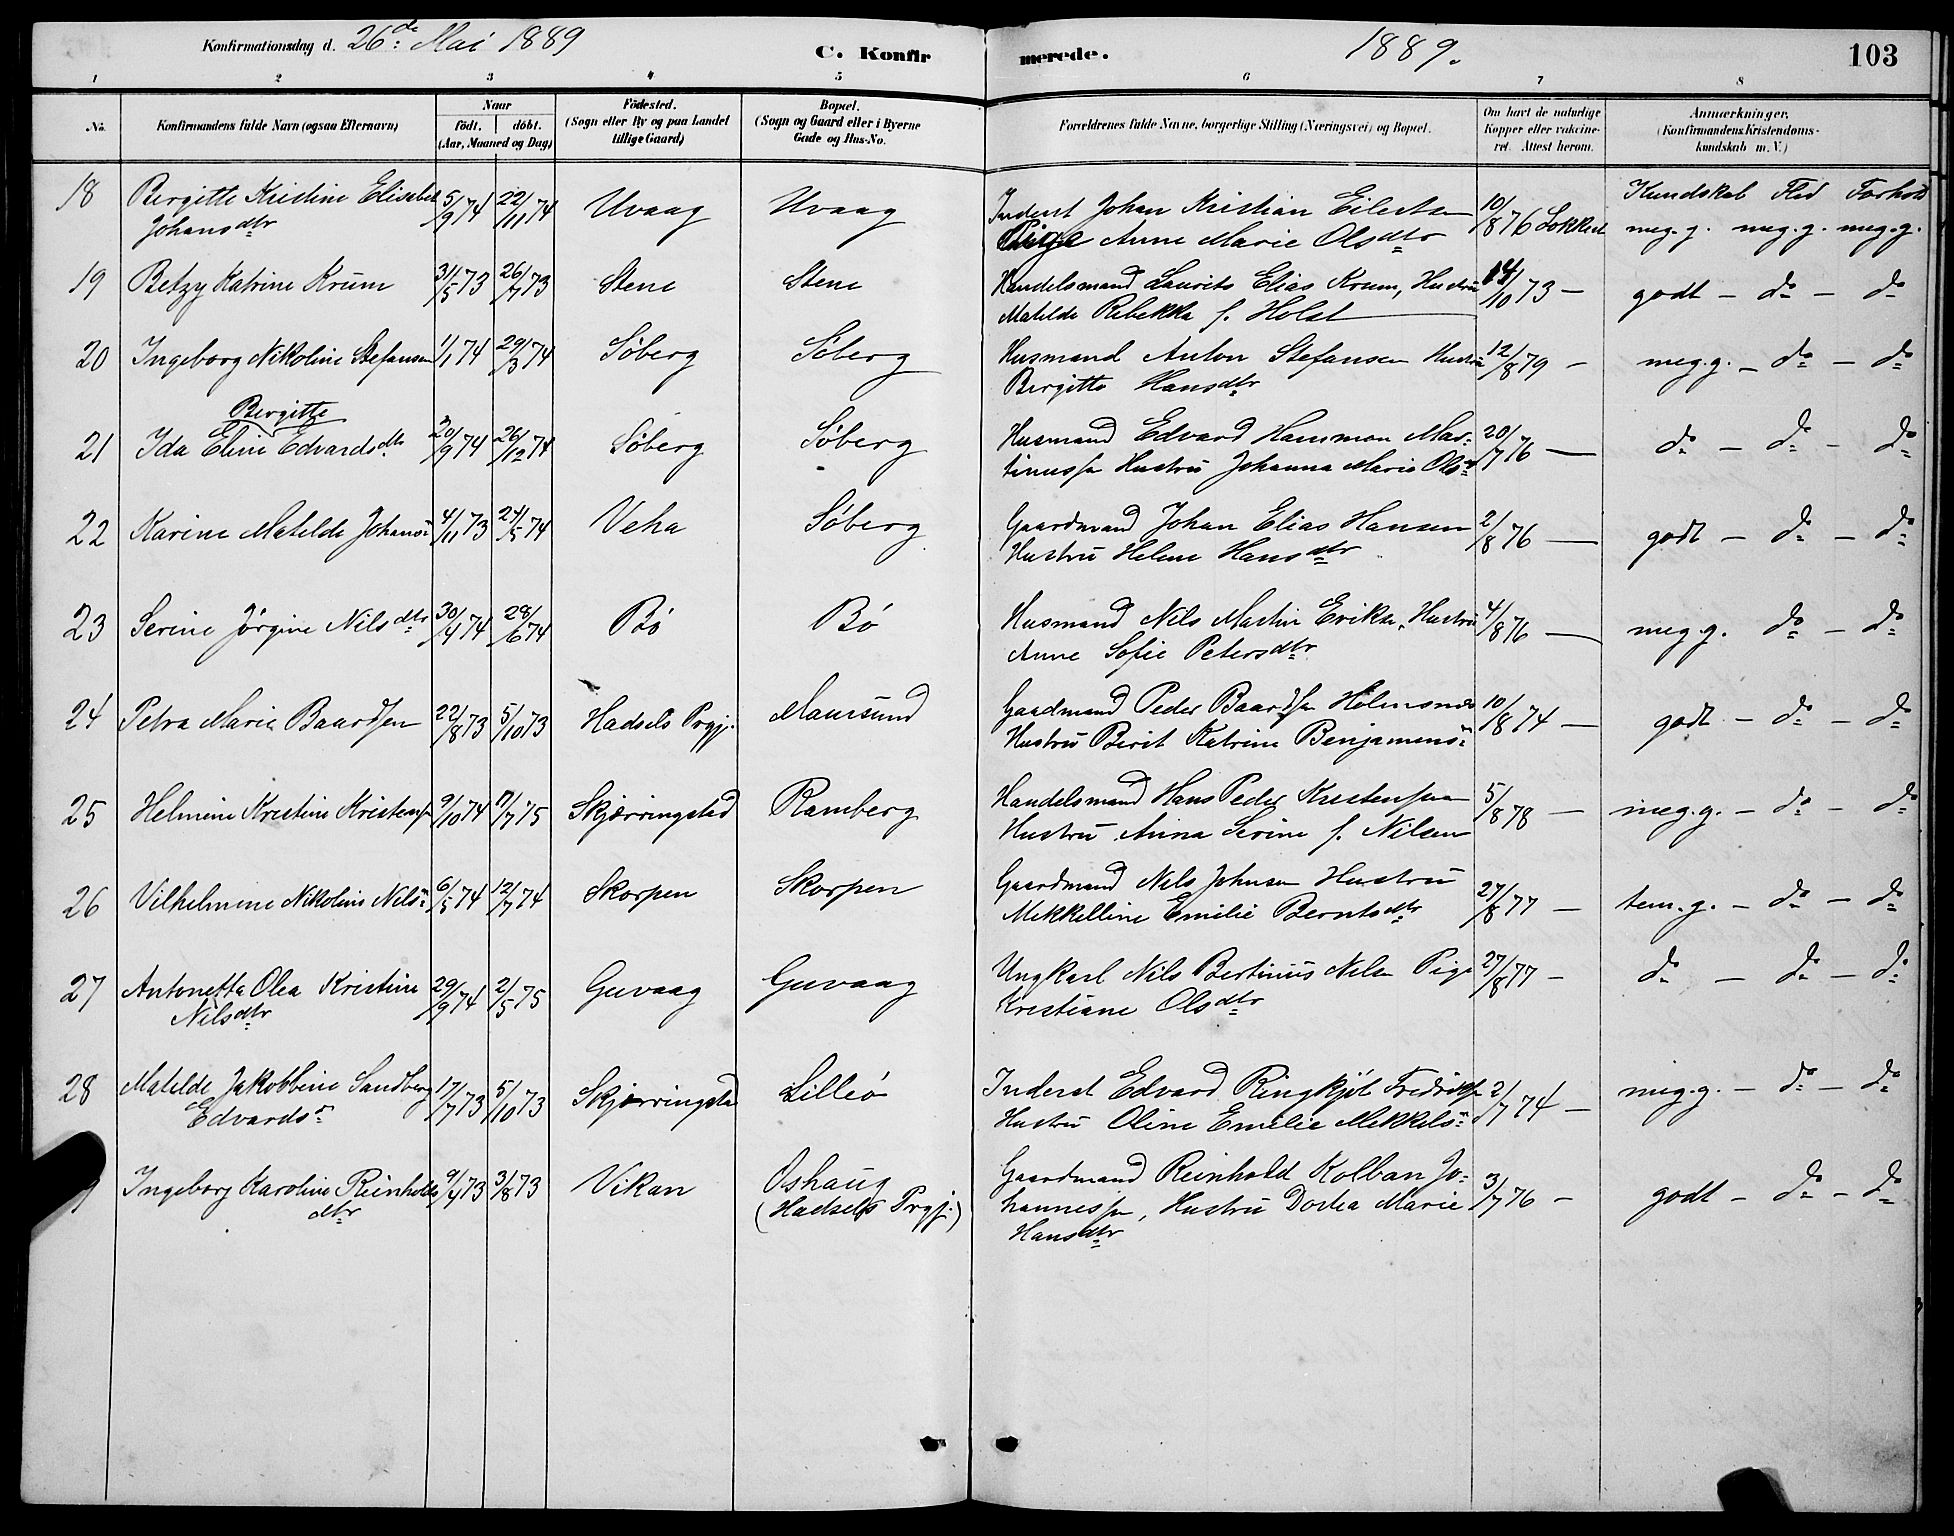 Konfirmationsdag d. 26de Mai 1889 C. Konfirmerede. 1889. 103
1 2 3 4 5 6 7 8
No. Konfirmandens fulde Navn (ogsaa Efternavn) Naar født. døbt. (Aar, Maaned og Dag) Fødested. (Sogn eller By og paa Landet tillige Gaard) Bopæl. (Sogn og Gaard eller i Byerne Gade og Hus-No. Forældrenes fulde Navne, borgerlige Stilling (Næringsvei) og Bopæl. Om havt de naturlige Kopper eller vakcineret. Attest herom. Anmærkninger. (Konfirmandens Kristendomskundskab m. V.)
Kundskab Flid Forhold
18 Bergitte Kristine Elisabet 5/9 74 22/11 74 Uvaag Uvaag Inderst Johan Kristian Eilertsen 10/8 76 Lokkert meg. g. meg. g. meg. g.
Johansdtr Pige Anne Marie Olsdtr
19 Betzy Katrine Krum 31/5 73 26/7 73 Stene Stene Handelsmand Laurits Elias Krum, Hustru 14/10 73 — godt — do — do
Matilde Rebekka f. Holst
20 Ingeborg Nikoline Stefansen 1/1 74 29/3 74 Søberg Søberg Husmand Anton Stefansen Hustru 12/8 79 — meg. g. — do — do
Bergitte Hansdtr
Bergitte
21 Ida Eline Edvardsdtr 20/9 74 26/12 74 Søberg Søberg Husmand Edvard Hammon Mar- 20/7 76 — do — do — do
tinussen Hustru Johanna Marie Ols"
22 Karine Matilde Johans" 4/11 73 24/5 74 Veha Søberg Gaardmand Johan Elias Hansen 2/8 76 — godt — do — do
Hustru Helene Hansdtr
23 Serine Jørgine Nilsdtr 30/4 74 28/6 74 Bø Bø Husmand Nils Martin Eriksn, Hustru 4/8 76 — meg. g. do — do
Anne Sofie Petersdtr
24 Petra Marie Baardsen 22/8 73 5/10 73 Hadsels Prgj. Maursund Gaardmand Peder Baardsen Holmsnes 10/8 74 — godt — do — do
Hustru Berit Katrine Benjamens"
25 Helmine Kristine Kristensen 9/10 74 7/7 75 Skjærringstad Ramberg Handelsmand Hans Peder Kristensen 5/8 78 — meg. g. — do — do
Hustru Anna Serine f. Nilsen
26 Vilhelmine Nikoline Nils" 6/5 74 12/7 74 Skorpen Skorpen Gaardmand Nils Johnsen Hustru 27/8 77 — tem. g. — do — do
Mekkelline Emilie Berntsdtr
27 Antonetta Olea Kristine 29/9 74 2/5 75 Guvaag Guvaag Ungkarl Nils Bertinus Nilsen Pige 27/8 77 — do — do — do
Nilsdtr Kristiane Olsdtr
28 Matilde Jakobbine Sandberg 17/7 73 5/10 73 Skjærringstad Lilleø Inderst Edvard Ringkjøb Fredriksen 2/7 74 — meg. g. — do — do
Edvards" Hustru Oline Emelie Mekkels"
9 Ingeborg Karoline Reinholds 9/4 73 3/8 73 Vikan Oshaug Gaardmand Reinhold Kolban Jo- 3/7 76 — godt — do — do
dtr (Hadsels Prgj.) hannessen, Hustru Dortea Marie
Hansdtr